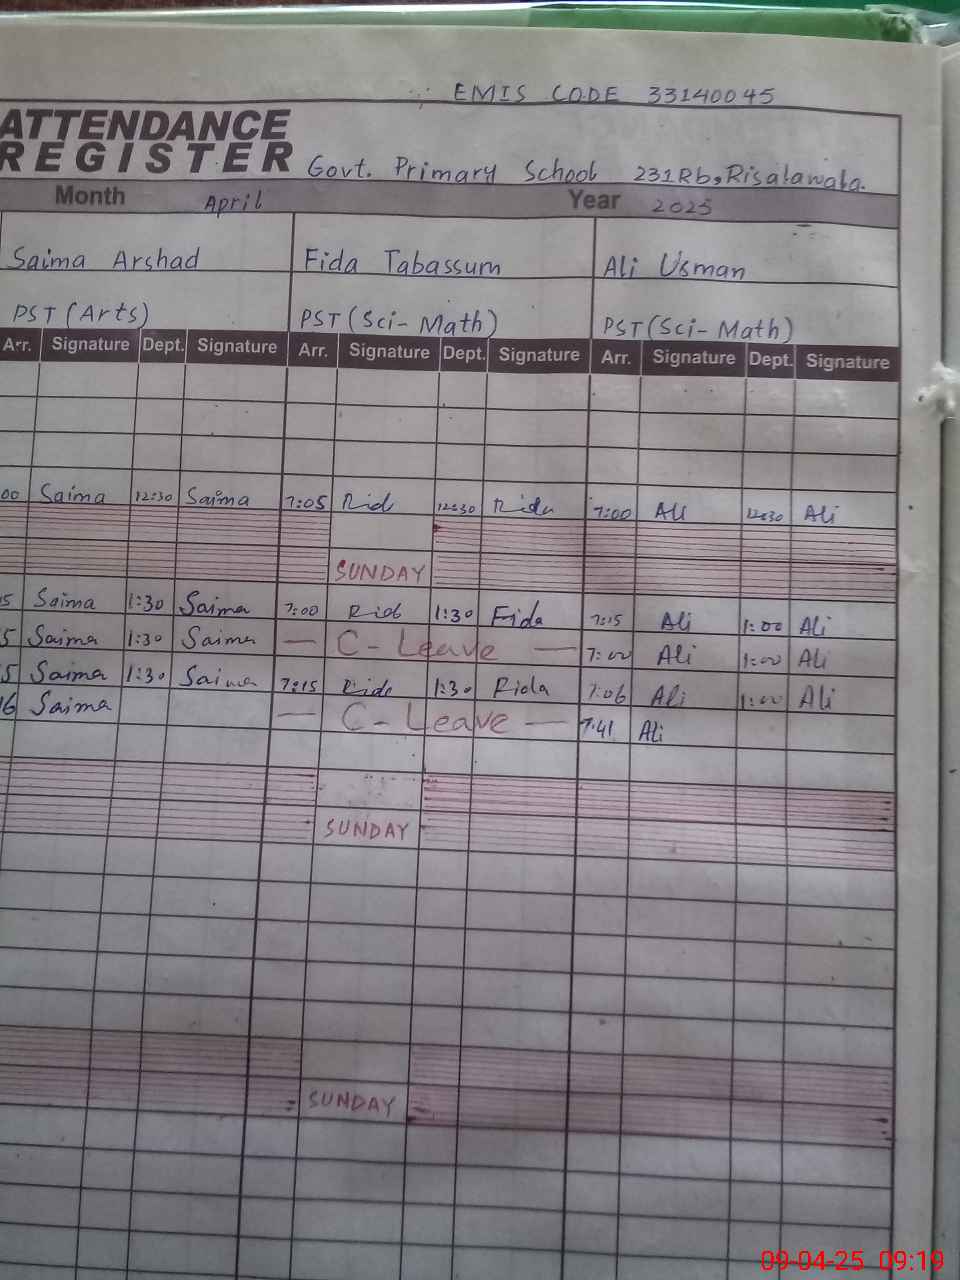 EMIS CODE 33140045
ATTENDANCE
REGISTER Govt. Primary School 231Rb, Risalawala.
Month April Year 2025
Saima Arshad Fida Tabassum Ali Usman
PST (Arts) PST (Sci-Math) PST (Sci-Math)
Arr. Signature Dept. Signature Arr. Signature Dept. Signature Arr. Signature Dept. Signature
00 Saima 12:30 Saima 7:05 12:30 7:00 Ali 12:30 Ali
SUNDAY
5 Saima 1:30 Saima 7:00 1:30 Fida 7:15 Ali 1:00 Ali
5 Saima 1:30 Saima — C-Leave — 7:00 Ali 1:00 Ali
5 Saima 1:30 Saima 7:15 1:30 Fida 7:06 Ali 1:00 Ali
6 Saima — C-Leave — 7:41 Ali
SUNDAY
SUNDAY
09-04-25 09:19